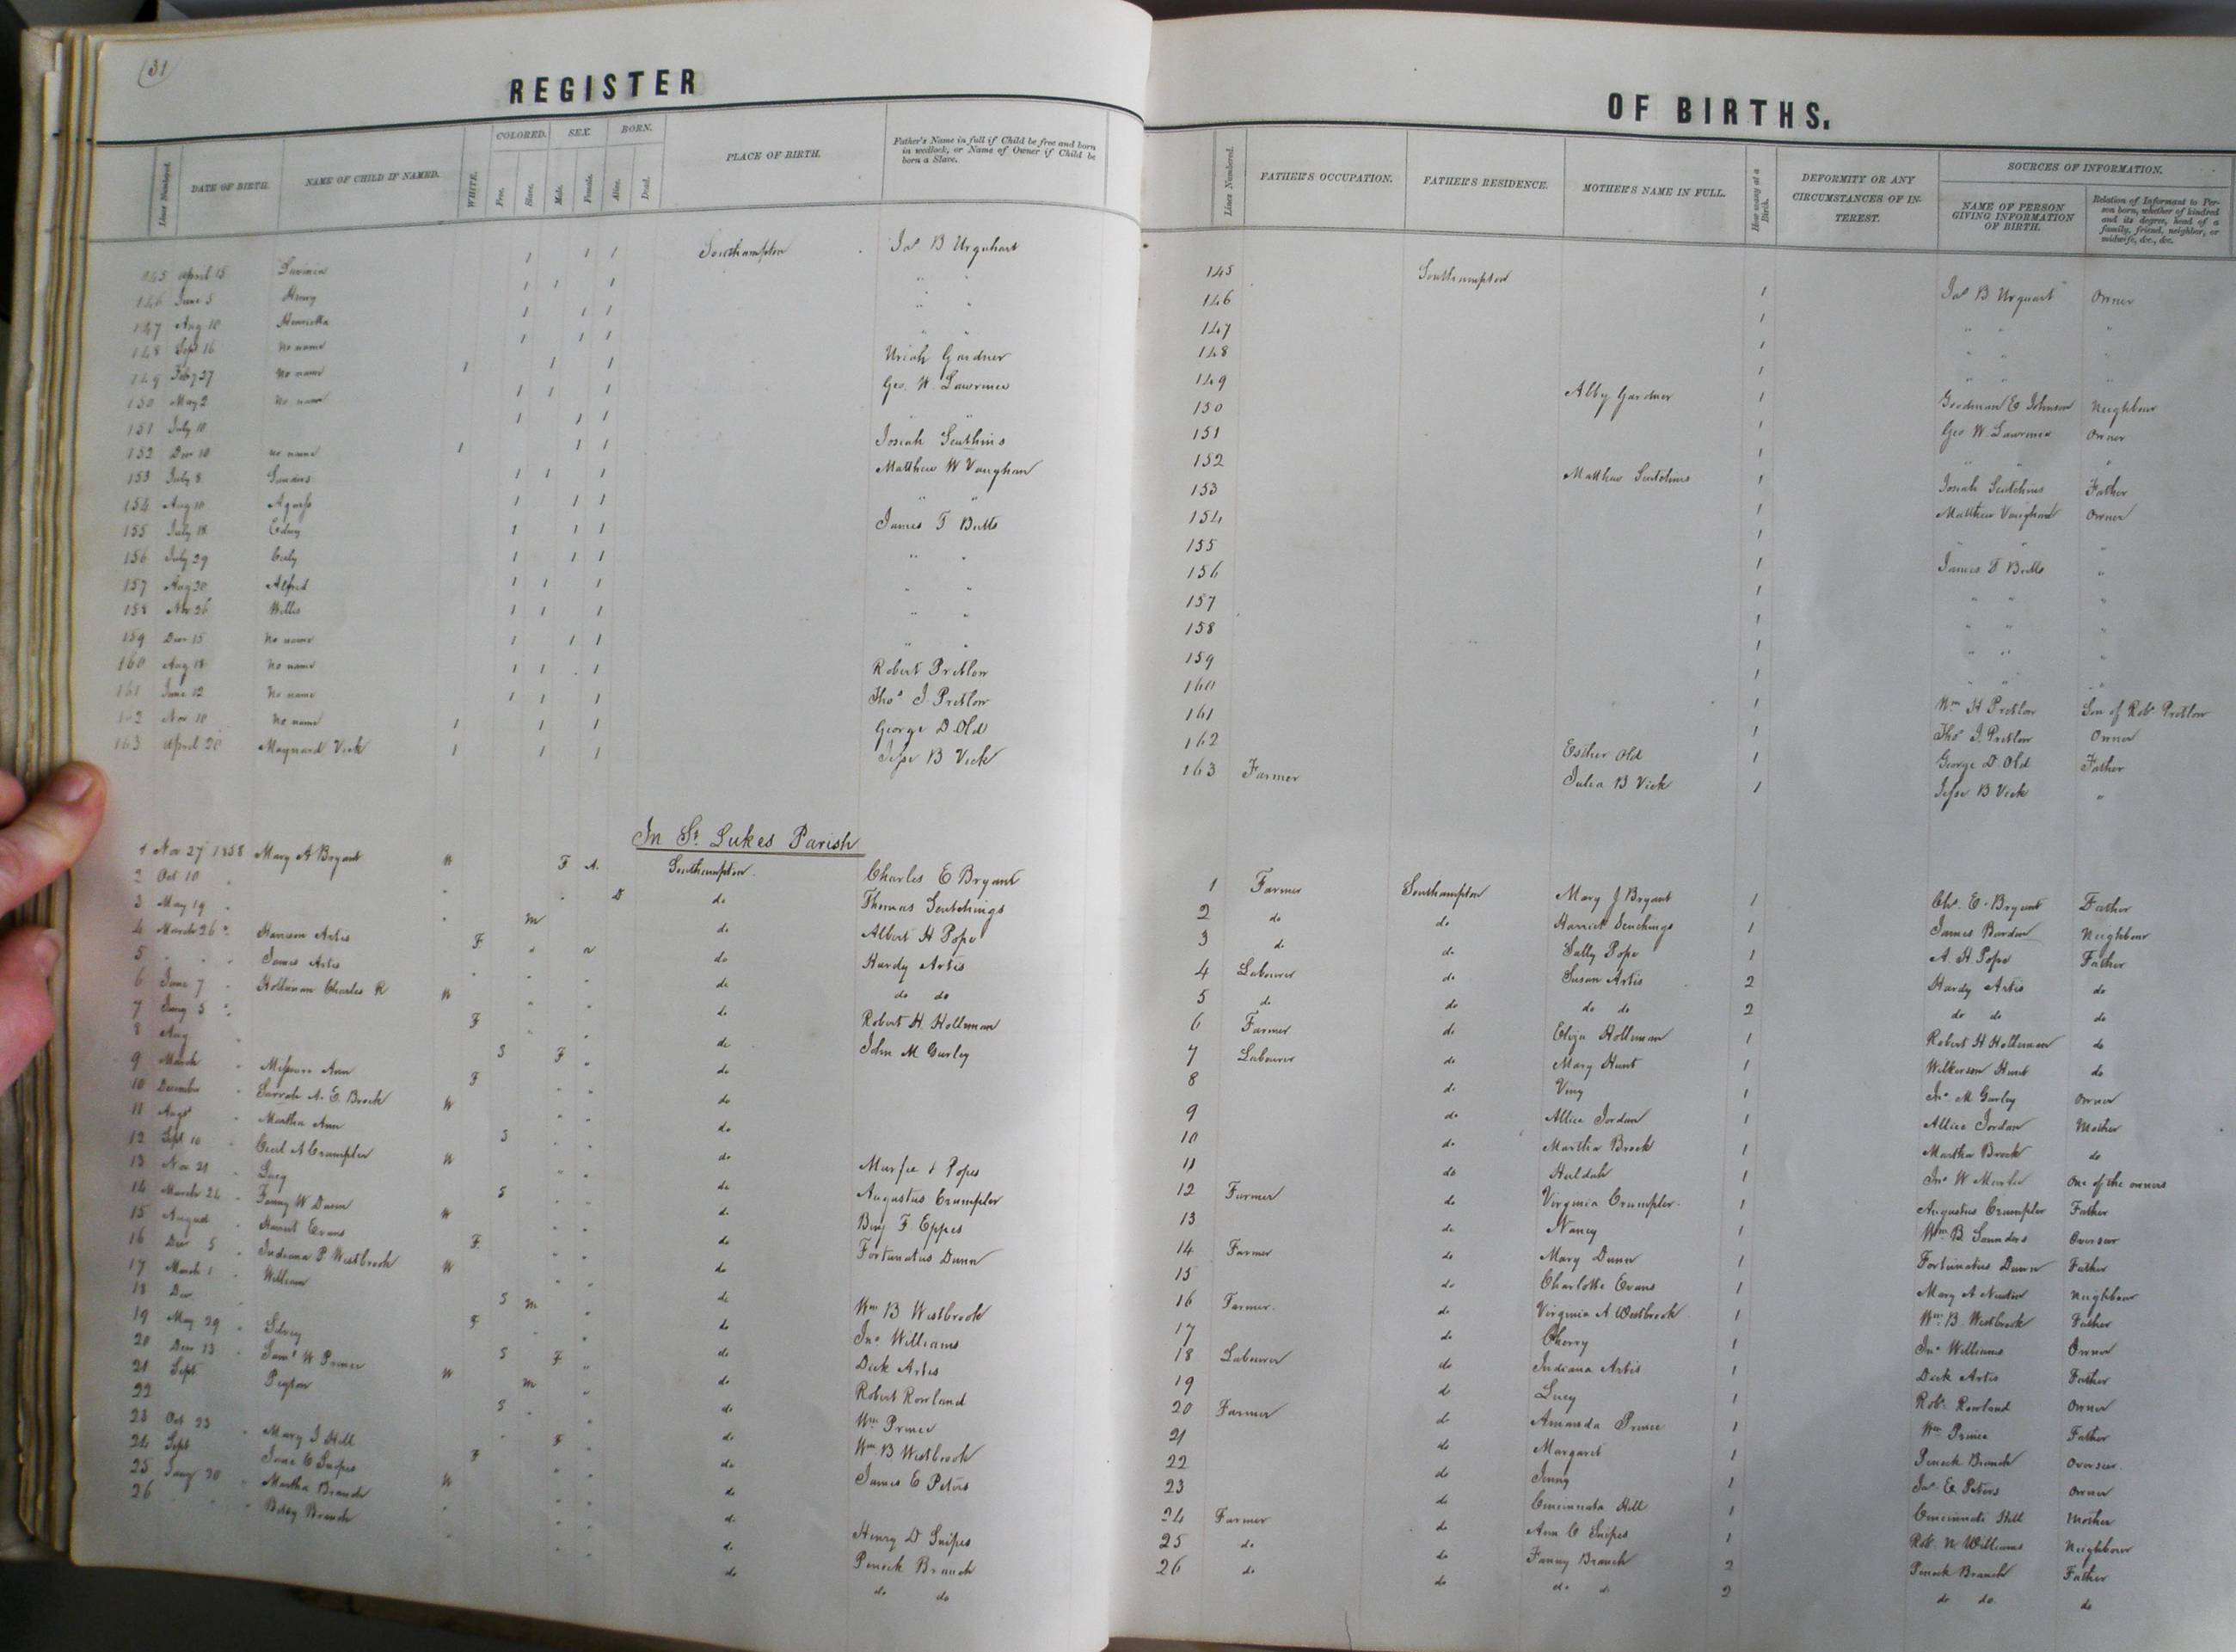 31
REGISTER
OF BIRTHS.
Lines Numbered. DATE OF BIRTH. NAME OF CHILD IF NAMED. WHITE. COLORED. Free. Slave. SEX. Male. Female. BORN. Alive. Dead. PLACE OF BIRTH. Father's Name in full if Child be free and born in wedlock, or Name of Owner if Child be born a Slave.
Lines Numbered. FATHER'S OCCUPATION. FATHER'S RESIDENCE. MOTHER'S NAME IN FULL. How many at a Birth. DEFORMITY OR ANY CIRCUMSTANCES OF INTEREST. SOURCES OF INFORMATION. NAME OF PERSON GIVING INFORMATION OF BIRTH. Relation of Informant to Person born, whether of kindred and its degree, head of a family, friend, neighbor, or midwife, &c., &c.
145 April 15 Lavinia 1 1 1 Southampton Jas B Urquhart 145 Southampton 1 Jas B Urquart Owner
146 June 5 Henry 1 1 1 " " 146 1 " " "
147 Aug 10 Henrietta 1 1 1 " " 147 1 " " "
148 Sept 16 No name 1 1 1 " " 148 1 " " "
149 Feby 27 No name 1 1 1 Uriah Gardner 149 Abby Gardner 1 Goodman E Johnson Neighbour
150 May 2 No name 1 1 1 Geo. W. Lawrence 150 1 Geo W. Lawrence Owner
151 July 10 1 1 1 " " 151 1 " " "
152 Dec 10 no name 1 1 1 Josiah 152 1 Josiah Father
153 July 8 1 1 1 Matthew W Vaughan 153 1 Matthew Vaughan Owner
154 Aug 10 1 1 1 " " 154 1 " " "
155 July 18 1 1 1 James T Butts 155 1 James T Butts "
156 July 29 1 1 1 " " 156 1 " " "
157 Aug 20 Alfred 1 1 1 " " 157 1 " " "
158 Nov 26 Willis 1 1 1 " " 158 1 " " "
159 Dec 15 No name 1 1 1 " " 159 1 " " "
160 Aug 18 No name 1 1 1 Robert Pretlow 160 1 Wm H Pretlow Son of Robt Pretlow
161 June 12 No name 1 1 1 Thos J Pretlow 161 1 Thos J. Pretlow Owner
162 Nov 10 No name 1 1 1 George D Old 162 Esther Old 1 George D. Old Father
163 April 20 Maynard Vick 1 1 1 Jesse B Vick 163 Farmer Julia B Vick 1 Jesse B Vick "
In St. Lukes Parish
1 Nov 27 1858 Mary A Bryant W F A. Southampton Charles E Bryant 1 Farmer Southampton Mary J Bryant 1 Chs. E. Bryant Father
2 Oct 10 " " " D do Thomas 2 do do Harriet 1 James Neighbour
3 May 19 " " m do Albert H Pope 3 do do Sally Pope 1 A. H. Pope Father
4 March 26 " Harrison Artis F " " do Hardy Artis 4 Labourer do Susan Artis 2 Hardy Artis do
5 " " " James Artis " " " do do do 5 do do do do 2 do do do
6 June 7 " Holleman Charles R W " " do Robert H. Holleman 6 Farmer do Eliza Holleman 1 Robert H Holleman do
7 " F " " do 7 Labourer do Mary Hunt 1 Wilkerson Hunt do
8 Aug " S F " do John M Gurley 8 do 1 Jno M Gurley Owner
9 March " Missouri Ann F " " do 9 do Allice Jordan 1 Allice Jordan Mother
10 December " Sarrah A. E. Brock W " " do 10 do Martha Brock 1 Martha Brock do
11 Augt " Martha Ann S " " do Murfee & Popes 11 do Huldah 1 Jno W One of the owners
12 Sept 10 " Cecil A Crumpler W " " do Augustus Crumpler 12 Farmer do Virginia Crumpler 1 Augustus Crumpler Father
13 Nov 21 " Lucy S " " do Benj F. Eppes 13 do Nancy 1 Wm B Saunders Overseer
14 March 24 " Fanny W Dunn W " " do Fortunatus Dunn 14 Farmer do Mary Dunn 1 Fortunatus Dunn Father
15 August " Evans F " " do 15 do Charlotte Evans 1 Mary A Newton Neighbour
16 Dec 5 " Indiana P Westbrook W " " do Wm B Westbrook 16 Farmer. do Virginia A Westbrook 1 Wm B. Westbrook Father
17 March 1 " William S m " do Jno Williams 17 do Cherry 1 Jno Williams Owner
18 Dec " F " " do Dick Artis 18 Labourer do Indiana Artis 1 Dick Artis Father
19 May 29 " Sidney S F " do Robert Rowland 19 do Lucy 1 Robt Rowland Owner
20 Dec 13 " Saml W Prince W m " do Wm Prince 20 Farmer do Amanda Prince 1 Wm Prince Father
21 Sept Peyton S " " do Wm B Westbrook 21 do Margaret 1 Penock Branch Overseer
22 " F " do James E Peters 22 do Jenny 1 Js E Peters Owner
23 Oct 23 " Mary J Hill F " " do 23 do Cincinnata Hill 1 Cincinnati Hill Mother
24 Sept " Jane C Snipes W " " do Henry D Snipes 24 Farmer do Ann C Snipes 1 Robt N Williams Neighbour
25 Jany 20 " Martha Branch " " " do Penock Branch 25 do do Fanny Branch 2 Penock Branch Father
26 " " " Betsy Branch " " " do do do 26 do do do do 2 do do do